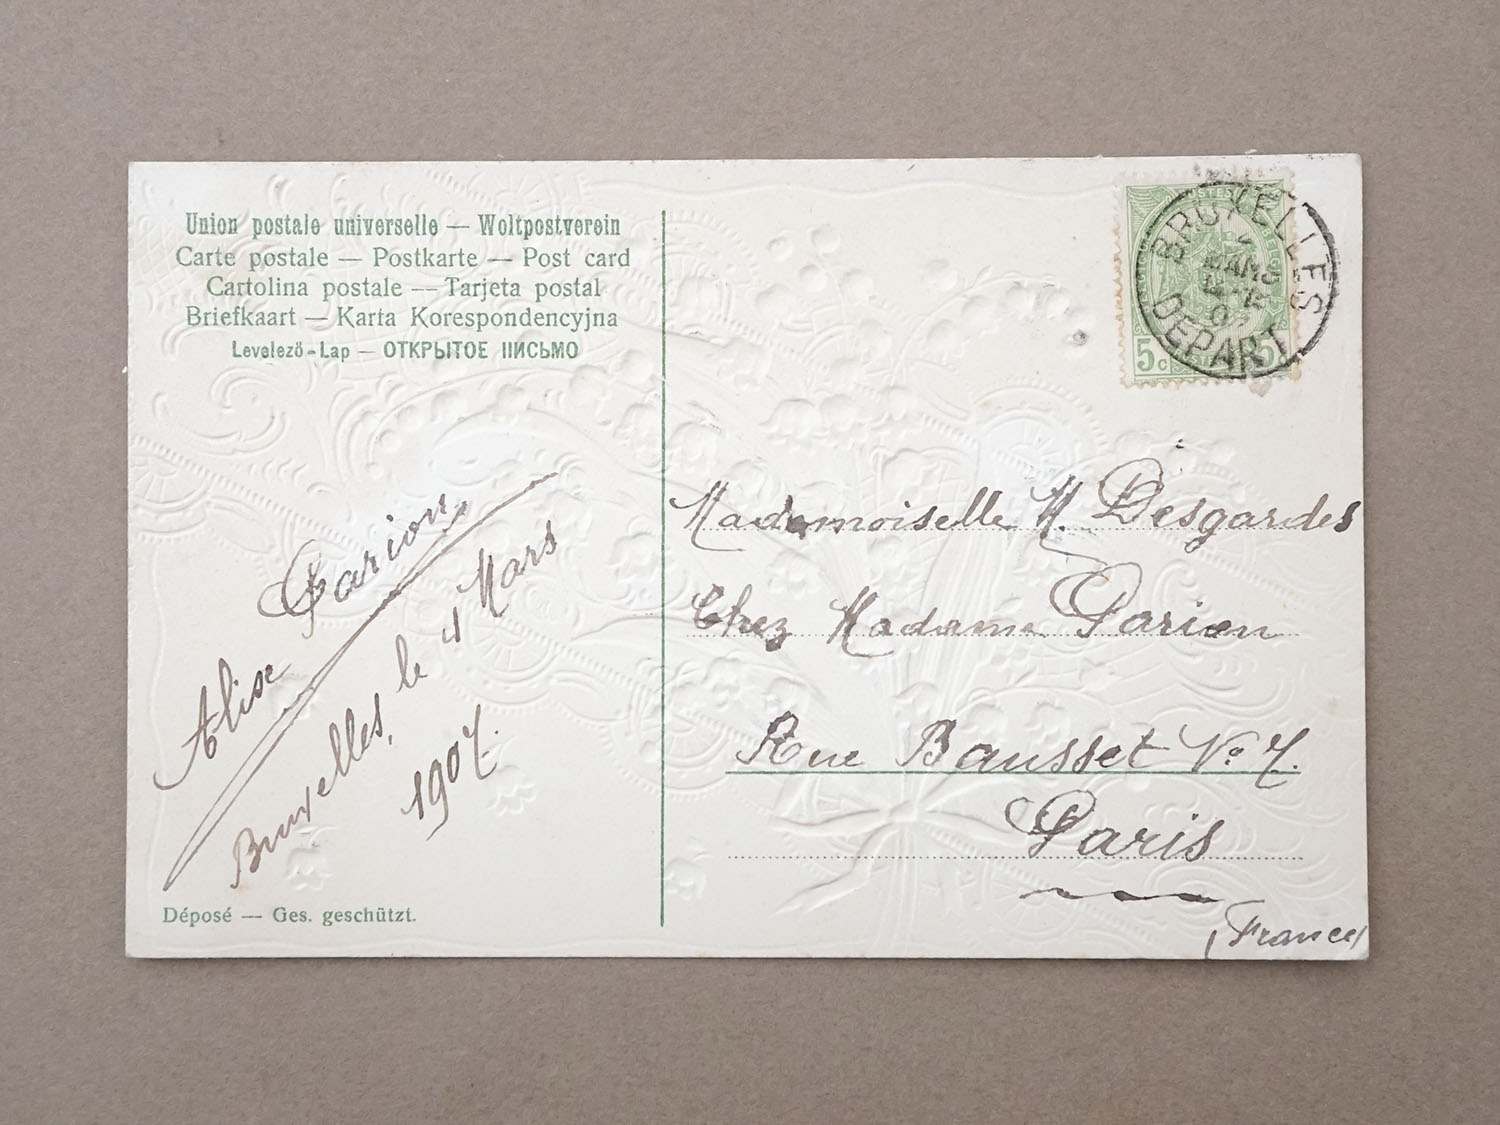 Union postale universelle — Woltpostverein
Carte postale — Postkarte — Post card
Cartolina postale — Tarjeta postal
Briefkaart — Karta Korespondencyjna
Levelezö-Lap — ОТКРЫТОЕ ПИСЬМО
BRUXELLES
DEPART
5c
Mademoiselle M. Desgardes
Chez Madame Parion
Rue Bausset No 7.
Paris
(France)
Alise Parion
Bruxelles, le 4 Mars
1907.
Déposé — Ges. geschützt.